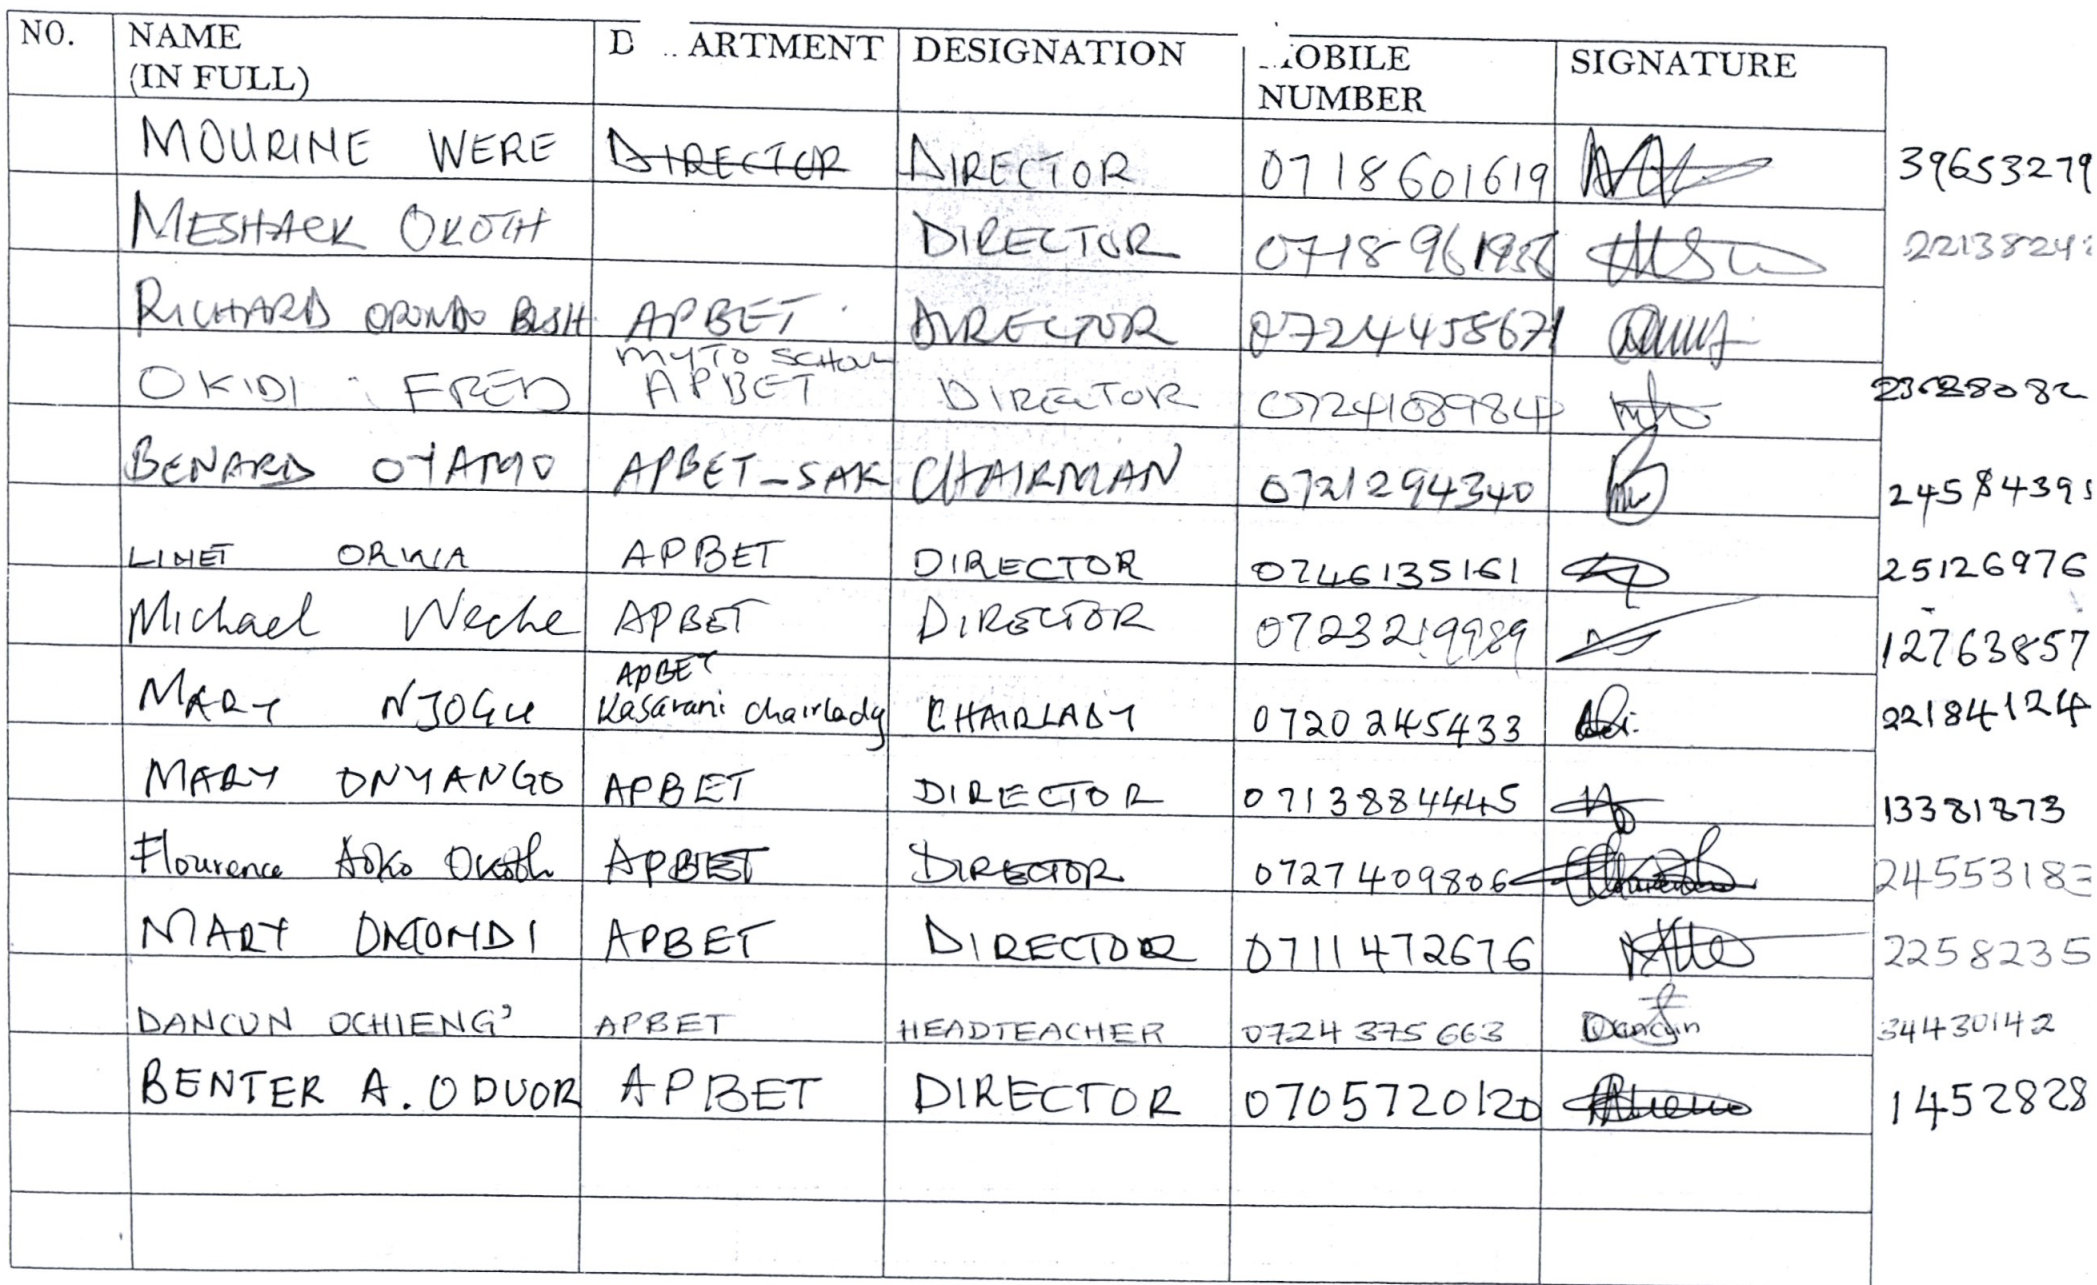 NO. NAME (IN FULL) D ARTMENT DESIGNATION OBILE NUMBER SIGNATURE
MOURINE WERE DIRECTOR DIRECTOR 0718601619 39653279
MESHACK OKOTH DIRECTOR 2213824
RICHARD BUSH APBET DIRECTOR 0724458671
OKIDI FRED MYTO SCHOOL APBET DIRECTOR 0724108984
BENARD OYAMO APBET-SAK CHAIRMAN 0721294340 2458439
LINET ORWA APBET DIRECTOR 0746135161 25126976
Michael Weche APBET DIRECTOR 0723219989 12763857
MARY NJOGU APBET Kasarani chairlady CHAIRLADY 0720245433 22184124
MARY ONYANGO APBET DIRECTOR 0713884445 13381873
Flourence Aoko Okoth APBET DIRECTOR 0727409806 2455318
MARY OMONDI APBET DIRECTOR 0711472676 2258235
DANCUN OCHIENG' APBET HEADTEACHER 0724 375 663 Dancun 34430142
BENTER A. ODUOR APBET DIRECTOR 0705720120 1452828